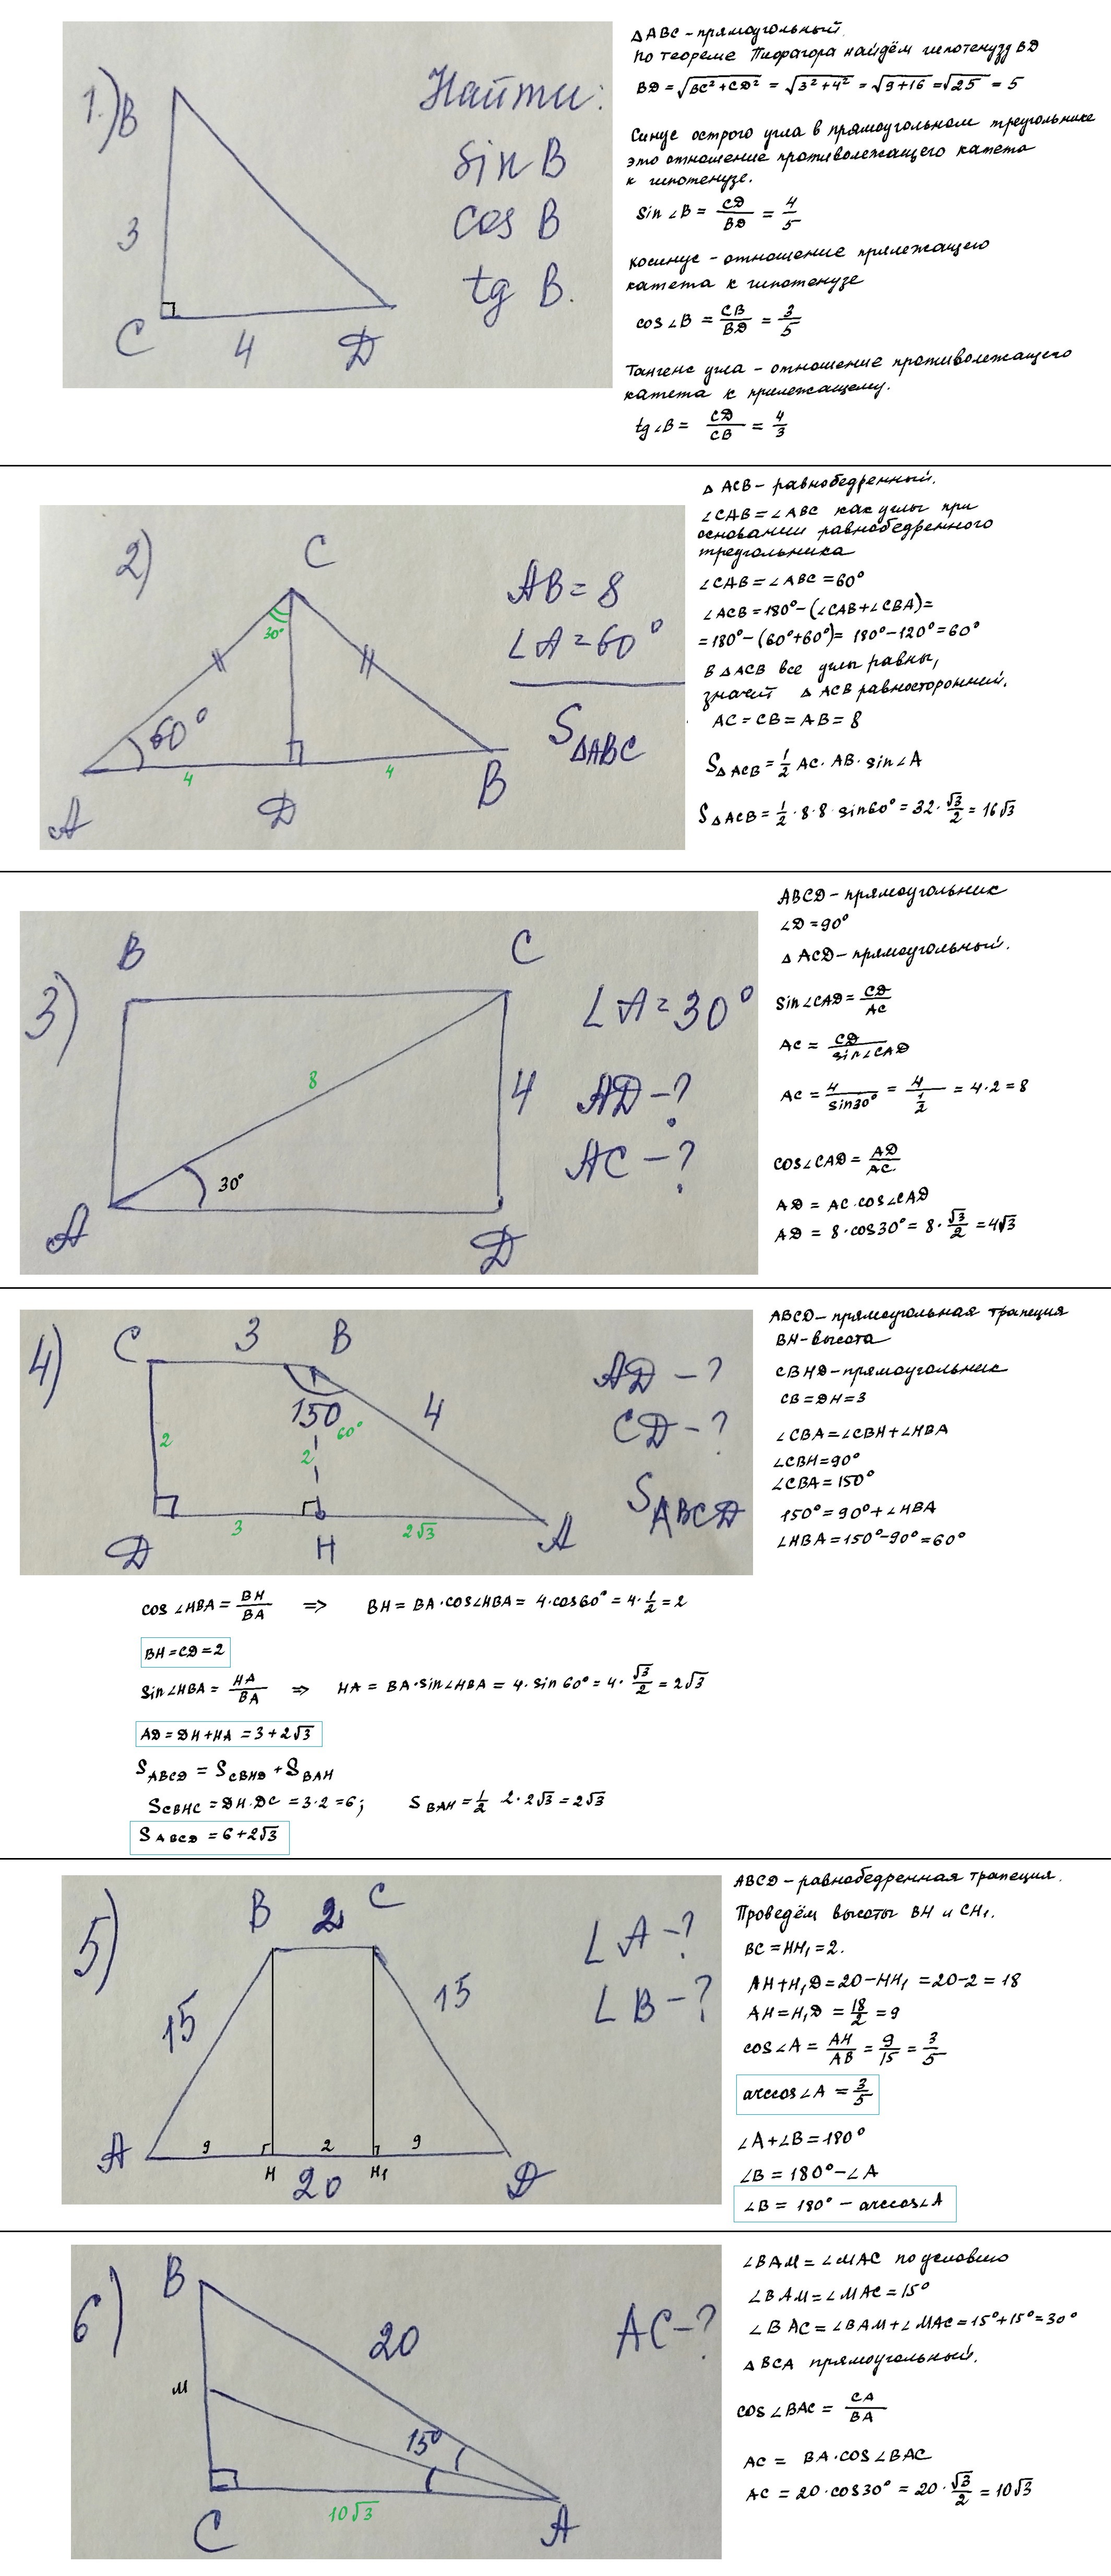 1.)
B
3
C
4
D
Найти:
sin B
cos B
tg B.
△ABC - прямоугольный.
По теореме Пифагора найдём гипотенузу BD
BD = √BC² + CD² = √3² + 4² = √9+16 = √25 = 5
Синус острого угла в прямоугольном треугольнике
это отношение противолежащего катета
к гипотенузе.
Sin ∠B = CD/BD = 4/5
косинус - отношение прилежащего
катета к гипотенузе
cos ∠B = CB/BD = 3/5
Тангенс угла - отношение противолежащего
катета к прилежащему.
tg ∠B = CD/CB = 4/3
2)
C
30°
60°
4
4
A
D
B
AB = 8
∠A = 60°
S△ABC
△ ACB - равнобедренный.
∠CAB = ∠ABC как углы при
основании равнобедренного
треугольника
∠CAB = ∠ABC = 60°
∠ACB = 180° - (∠CAB + ∠CBA) =
= 180° - (60° + 60°) = 180° - 120° = 60°
В △ACB все углы равны,
значит △ ACB равносторонний.
AC = CB = AB = 8
S△ACB = 1/2 AC · AB · sin ∠A
S△ACB = 1/2 · 8 · 8 · sin60° = 32 · √3/2 = 16√3
3)
B
C
8
4
30°
A
D
∠A = 30°
AD - ?
AC - ?
ABCD - прямоугольник
∠D = 90°
△ ACD - прямоугольный.
Sin ∠CAD = CD/AC
AC = CD/sin∠CAD
AC = 4/sin30° = 4/(1/2) = 4 · 2 = 8
COS ∠CAD = AD/AC
AD = AC · cos∠CAD
AD = 8 · cos30° = 8 · √3/2 = 4√3
4)
C
3
B
150
60°
4
2
2
3
2√3
D
H
A
AD - ?
CD - ?
SABCD
ABCD - прямоугольная трапеция
BH - высота
CBHD - прямоугольник
CB = DH = 3
∠CBA = ∠CBH + ∠HBA
∠CBH = 90°
∠CBA = 150°
150° = 90° + ∠HBA
∠HBA = 150° - 90° = 60°
cos ∠HBA = BH/BA => BH = BA · cos∠HBA = 4 · cos60° = 4 · 1/2 = 2
BH = CD = 2
Sin ∠HBA = HA/BA => HA = BA · sin∠HBA = 4 · sin 60° = 4 · √3/2 = 2√3
AD = DH + HA = 3 + 2√3
SABCD = SCBHD + SBAH
SCBHC = DH · DC = 3 · 2 = 6; SBAH = 1/2 · 2 · 2√3 = 2√3
SABCD = 6 + 2√3
5)
B
2
C
15
15
A
9
2
9
H
20
H₁
D
∠A - ?
∠B - ?
ABCD - равнобедренная трапеция.
Проведём высоты BH и CH₁.
BC = HH₁ = 2.
AH + H₁D = 20 - HH₁ = 20 - 2 = 18
AH = H₁D = 18/2 = 9
cos ∠A = AH/AB = 9/15 = 3/5
arccos ∠A = 3/5
∠A + ∠B = 180°
∠B = 180° - ∠A
∠B = 180° - arccos∠A
6)
B
20
M
15°
10√3
C
A
AC - ?
∠BAM = ∠MAC по условию
∠BAM = ∠MAC = 15°
∠BAC = ∠BAM + ∠MAC = 15° + 15° = 30°
△BCA прямоугольный.
COS ∠BAC = CA/BA
AC = BA · cos ∠BAC
AC = 20 · cos30° = 20 · √3/2 = 10√3